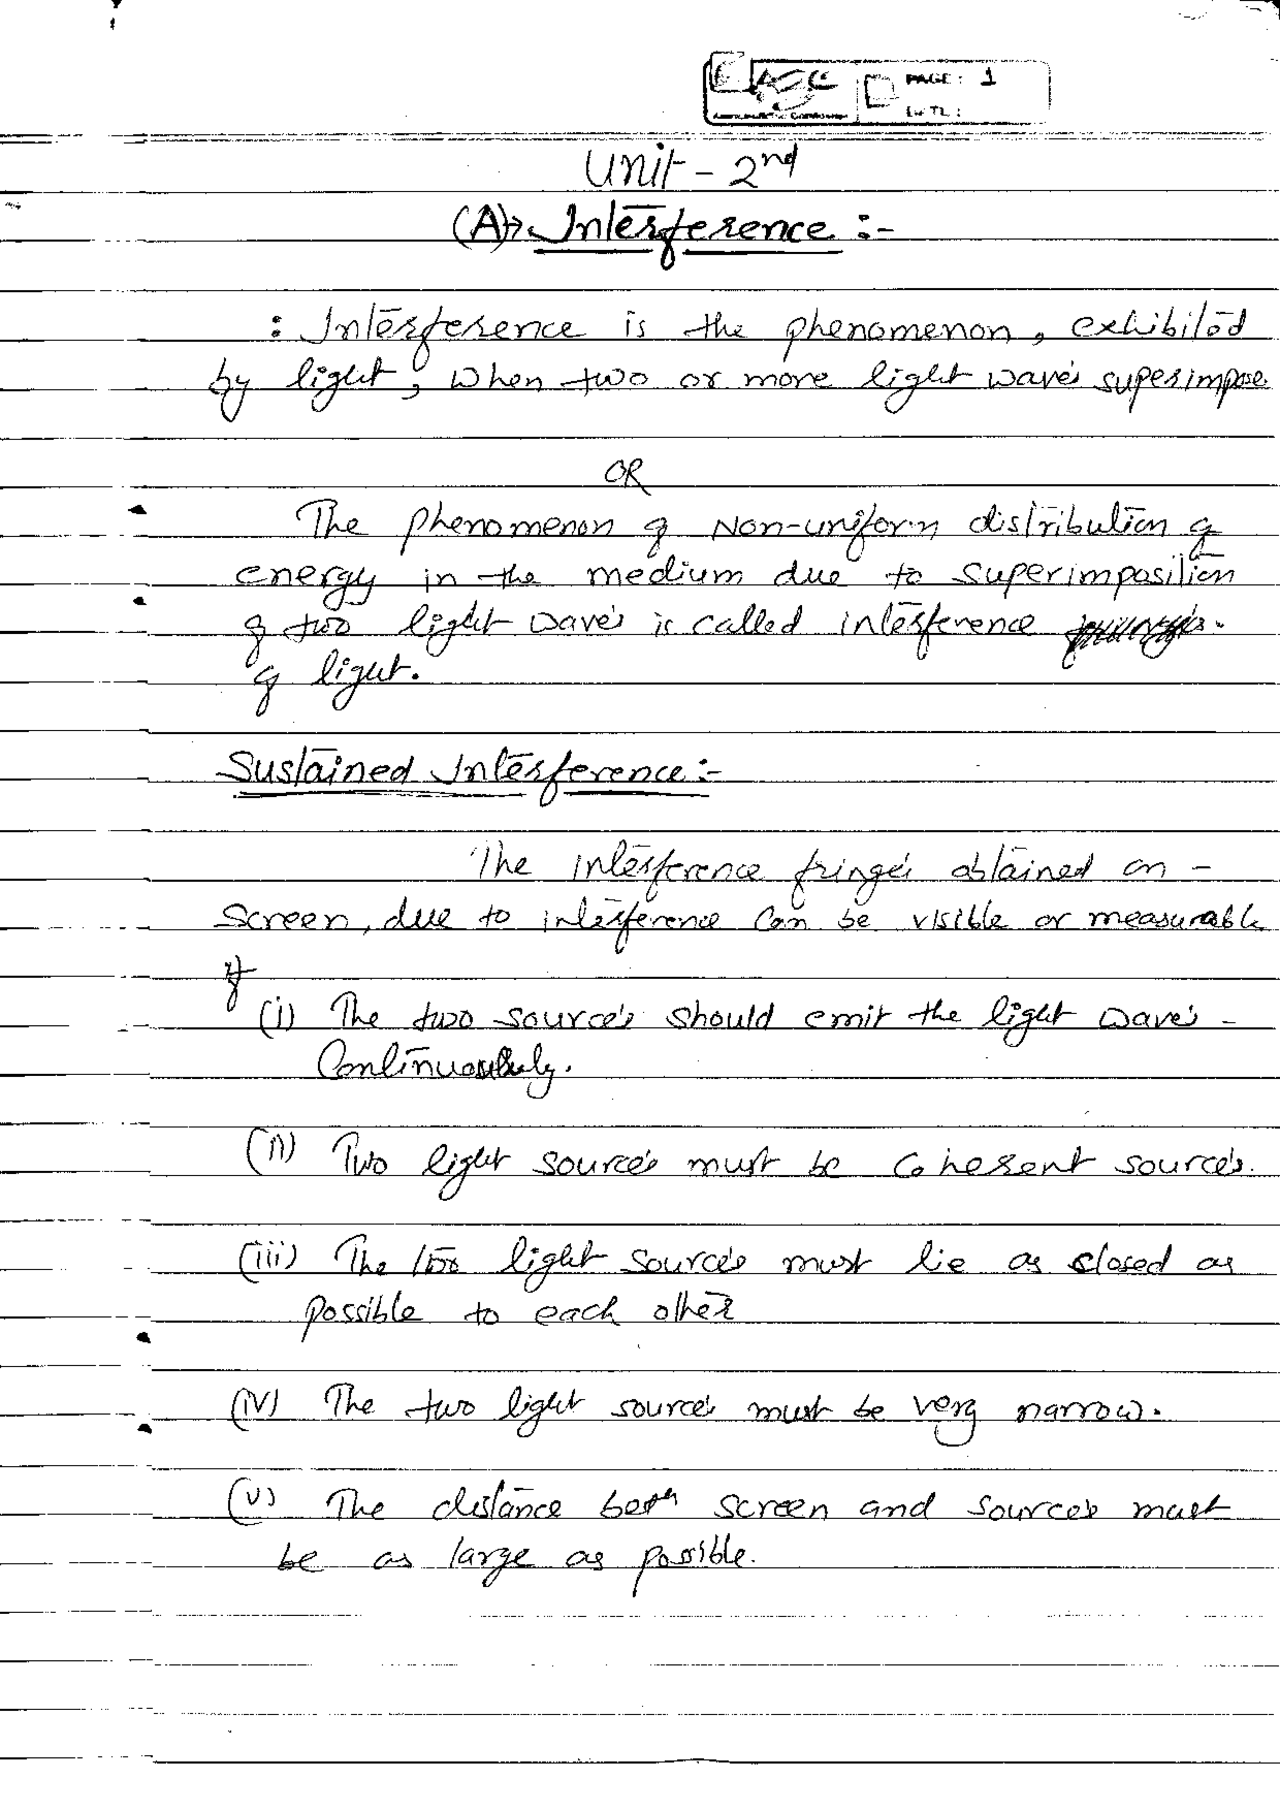 PAGE: 1
Unit - 2nd
(A)→ Interference :-
: Interference is the phenomenon, exhibited
by light, when two or more light waves superimpose.
OR
The phenomenon of Non-uniform distribution of
energy in the medium due to superimposition
of two light waves is called interference
of light.
Sustained Interference :-
The interference fringes obtained on -
Screen, due to interference can be visible or measurable
if
(i) The two sources should emit the light waves -
Continuously.
(ii) Two light sources must be Coherent sources.
(iii) The two light sources must lie as closed as
possible to each other
(iv) The two light sources must be very narrow.
(v) The distance betn screen and sources must
be as large as possible.